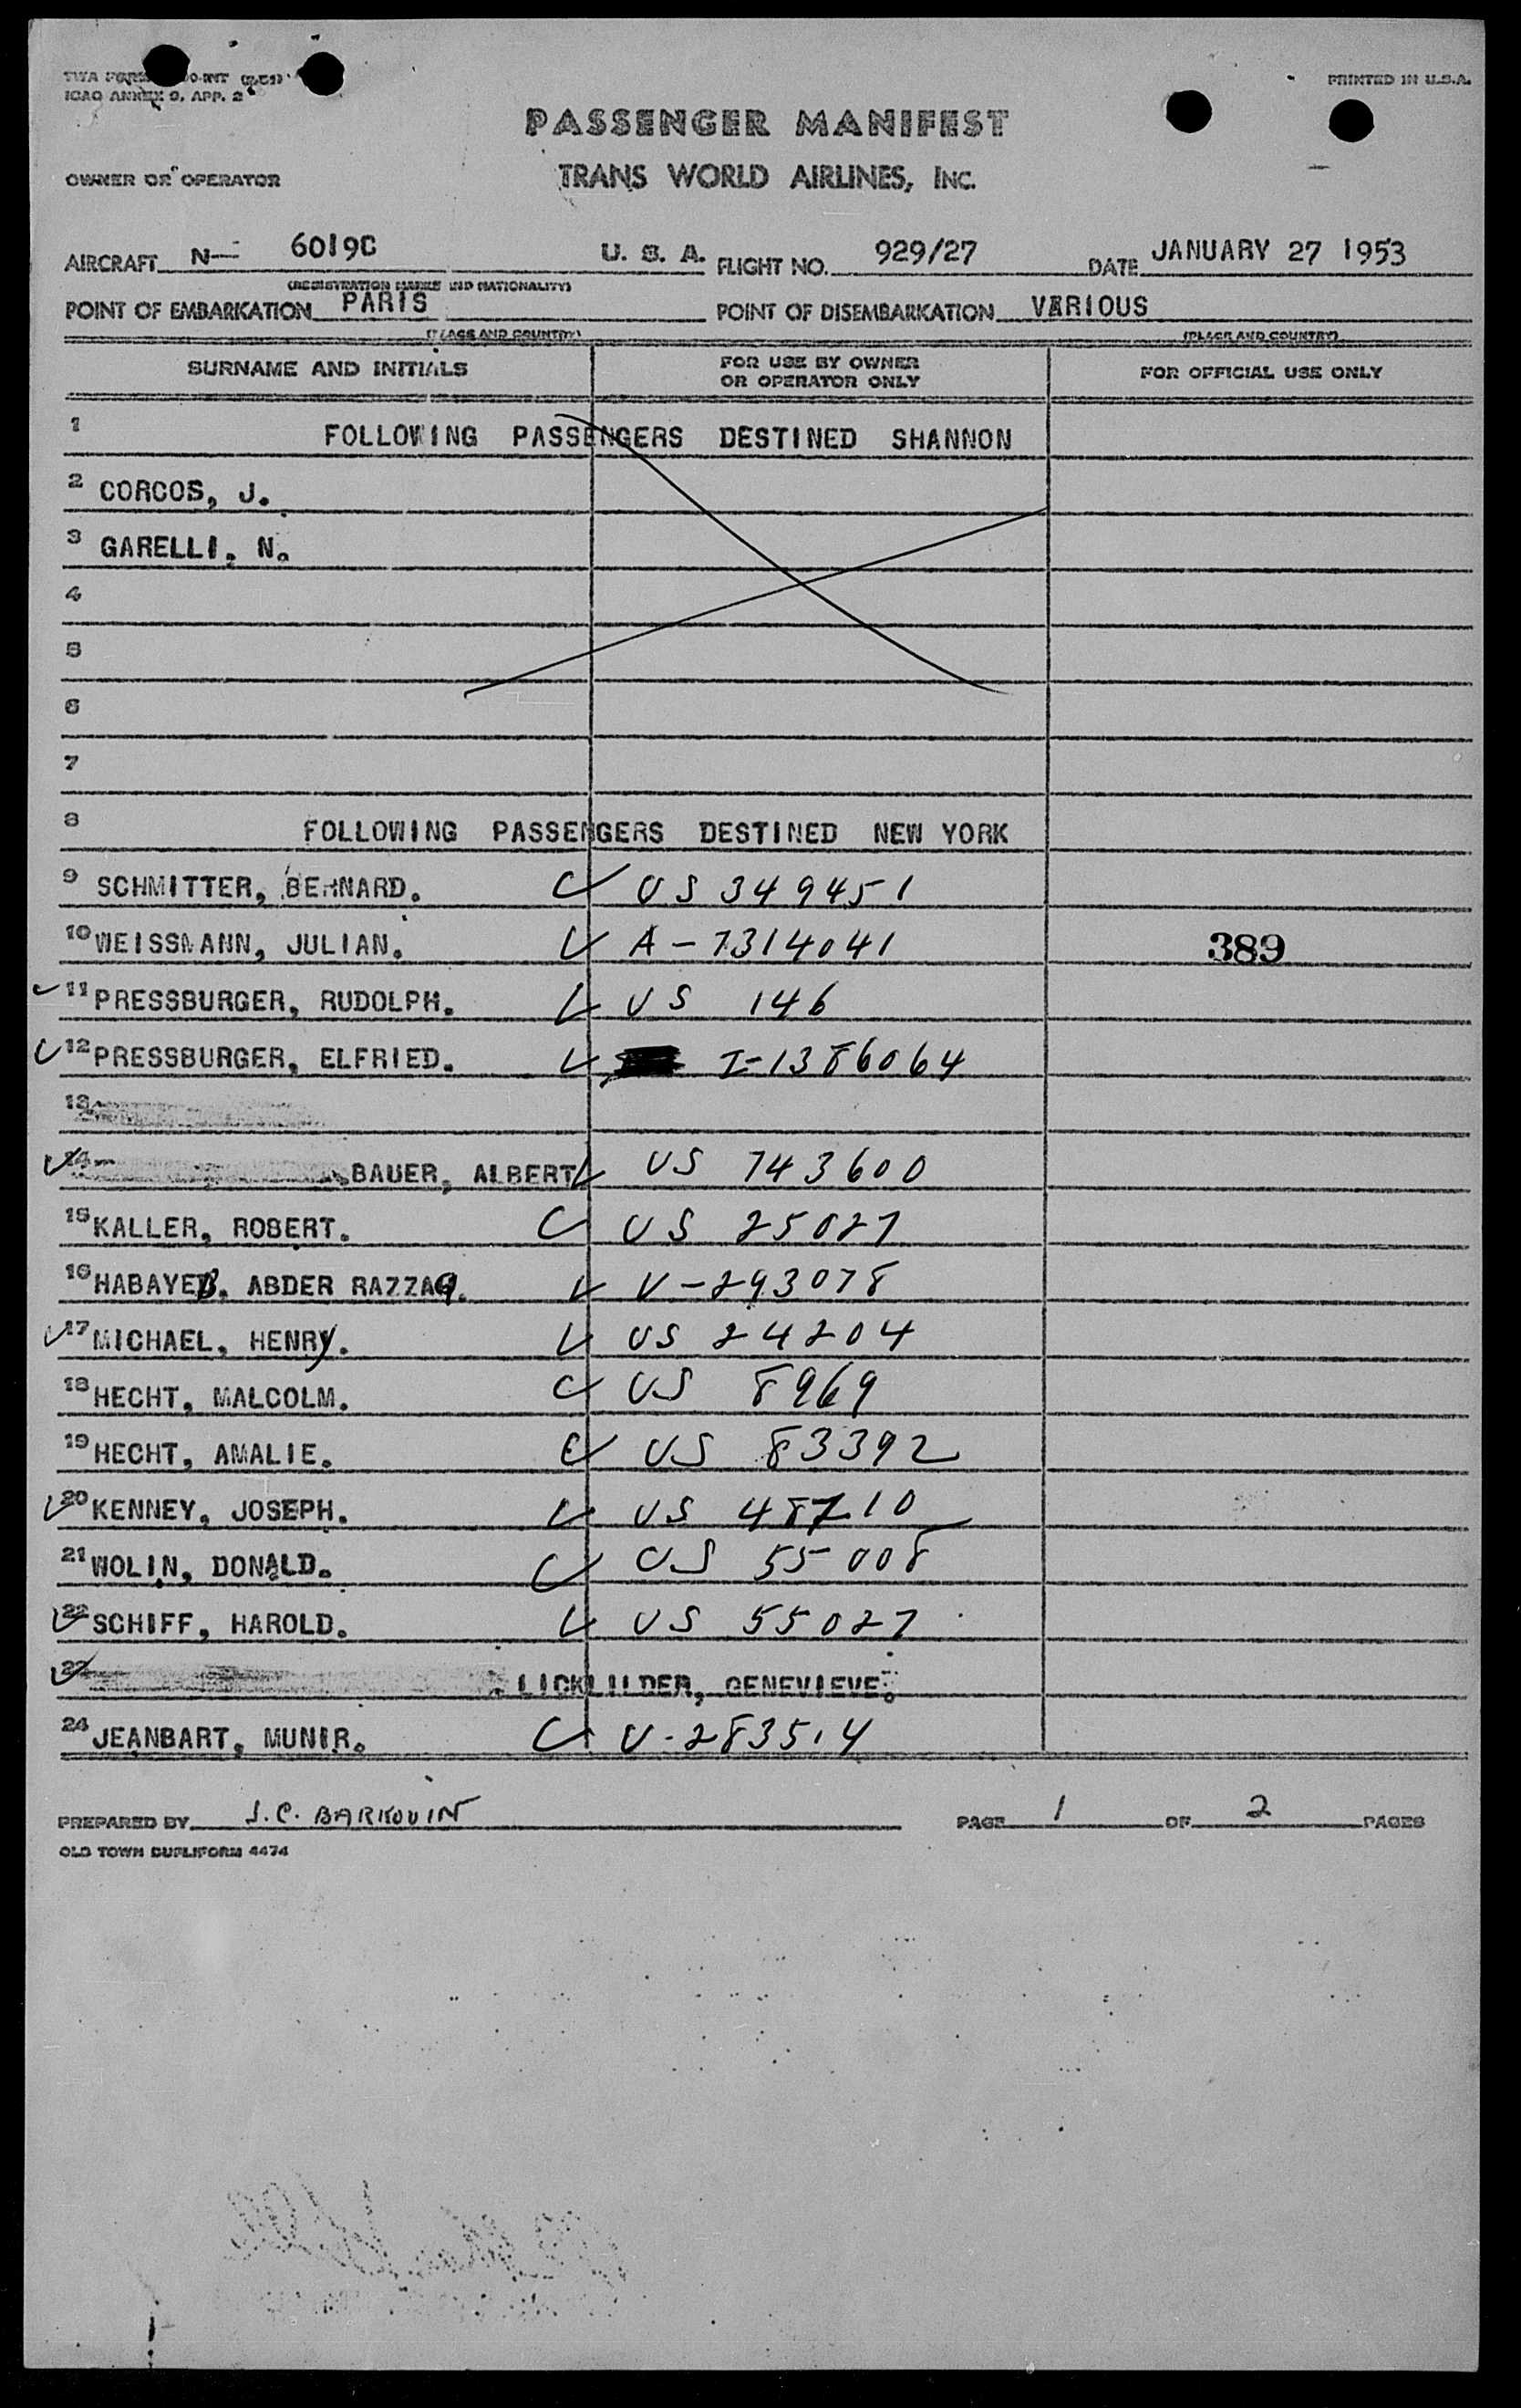 ICAO ANNEX 9, APP. 2
PRINTED IN U.S.A.
PASSENGER MANIFEST
OWNER OR OPERATOR
TRANS WORLD AIRLINES, INC.
AIRCRAFT N— 6019C U. S. A. FLIGHT NO. 929/27 DATE JANUARY 27 1953
(REGISTRATION MARKS AND NATIONALITY)
POINT OF EMBARKATION PARIS POINT OF DISEMBARKATION VARIOUS
(PLACE AND COUNTRY) (PLACE AND COUNTRY)
SURNAME AND INITIALS FOR USE BY OWNER OR OPERATOR ONLY FOR OFFICIAL USE ONLY
1 FOLLOWING PASSENGERS DESTINED SHANNON
2 CORCOS, J.
3 GARELLI, N.
4
5
6
7
8 FOLLOWING PASSENGERS DESTINED NEW YORK
9 SCHMITTER, BERNARD. US 349451
10 WEISSMANN, JULIAN. A-7314041 389
11 PRESSBURGER, RUDOLPH. US 146
12 PRESSBURGER, ELFRIED. I-1386064
13
14 BAUER, ALBERT US 743600
15 KALLER, ROBERT. US 25027
16 HABAYEB, ABDER RAZZAQ. V-293078
17 MICHAEL, HENRY. US 24204
18 HECHT, MALCOLM. US 8969
19 HECHT, AMALIE. US 83392
20 KENNEY, JOSEPH. US 48710
21 WOLIN, DONALD. US 55008
22 SCHIFF, HAROLD. US 55027
23 LICKLILDER, GENEVIEVE.
24 JEANBART, MUNIR. V-283514
PREPARED BY J.C. BARKOUIN PAGE 1 OF 2 PAGES
OLD TOWN DUPLIFORM 4474